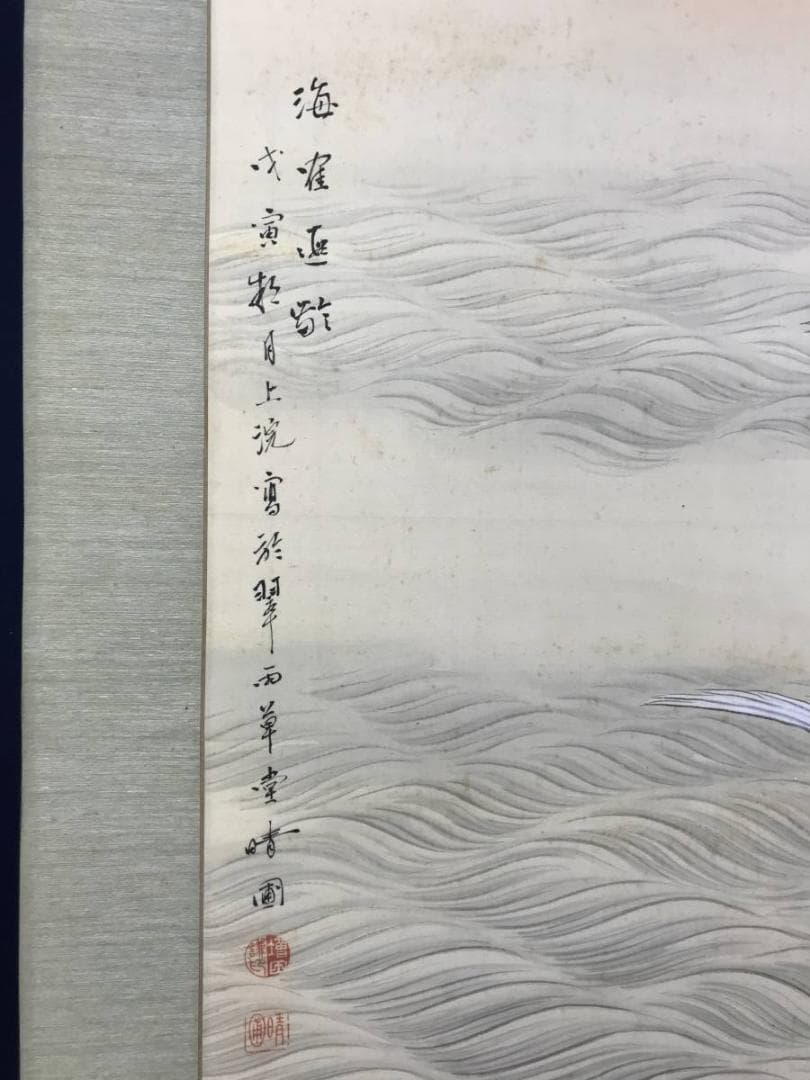 海寉遐齡
戊寅 月上浣寫於翠雨草堂晴圃
晴圃